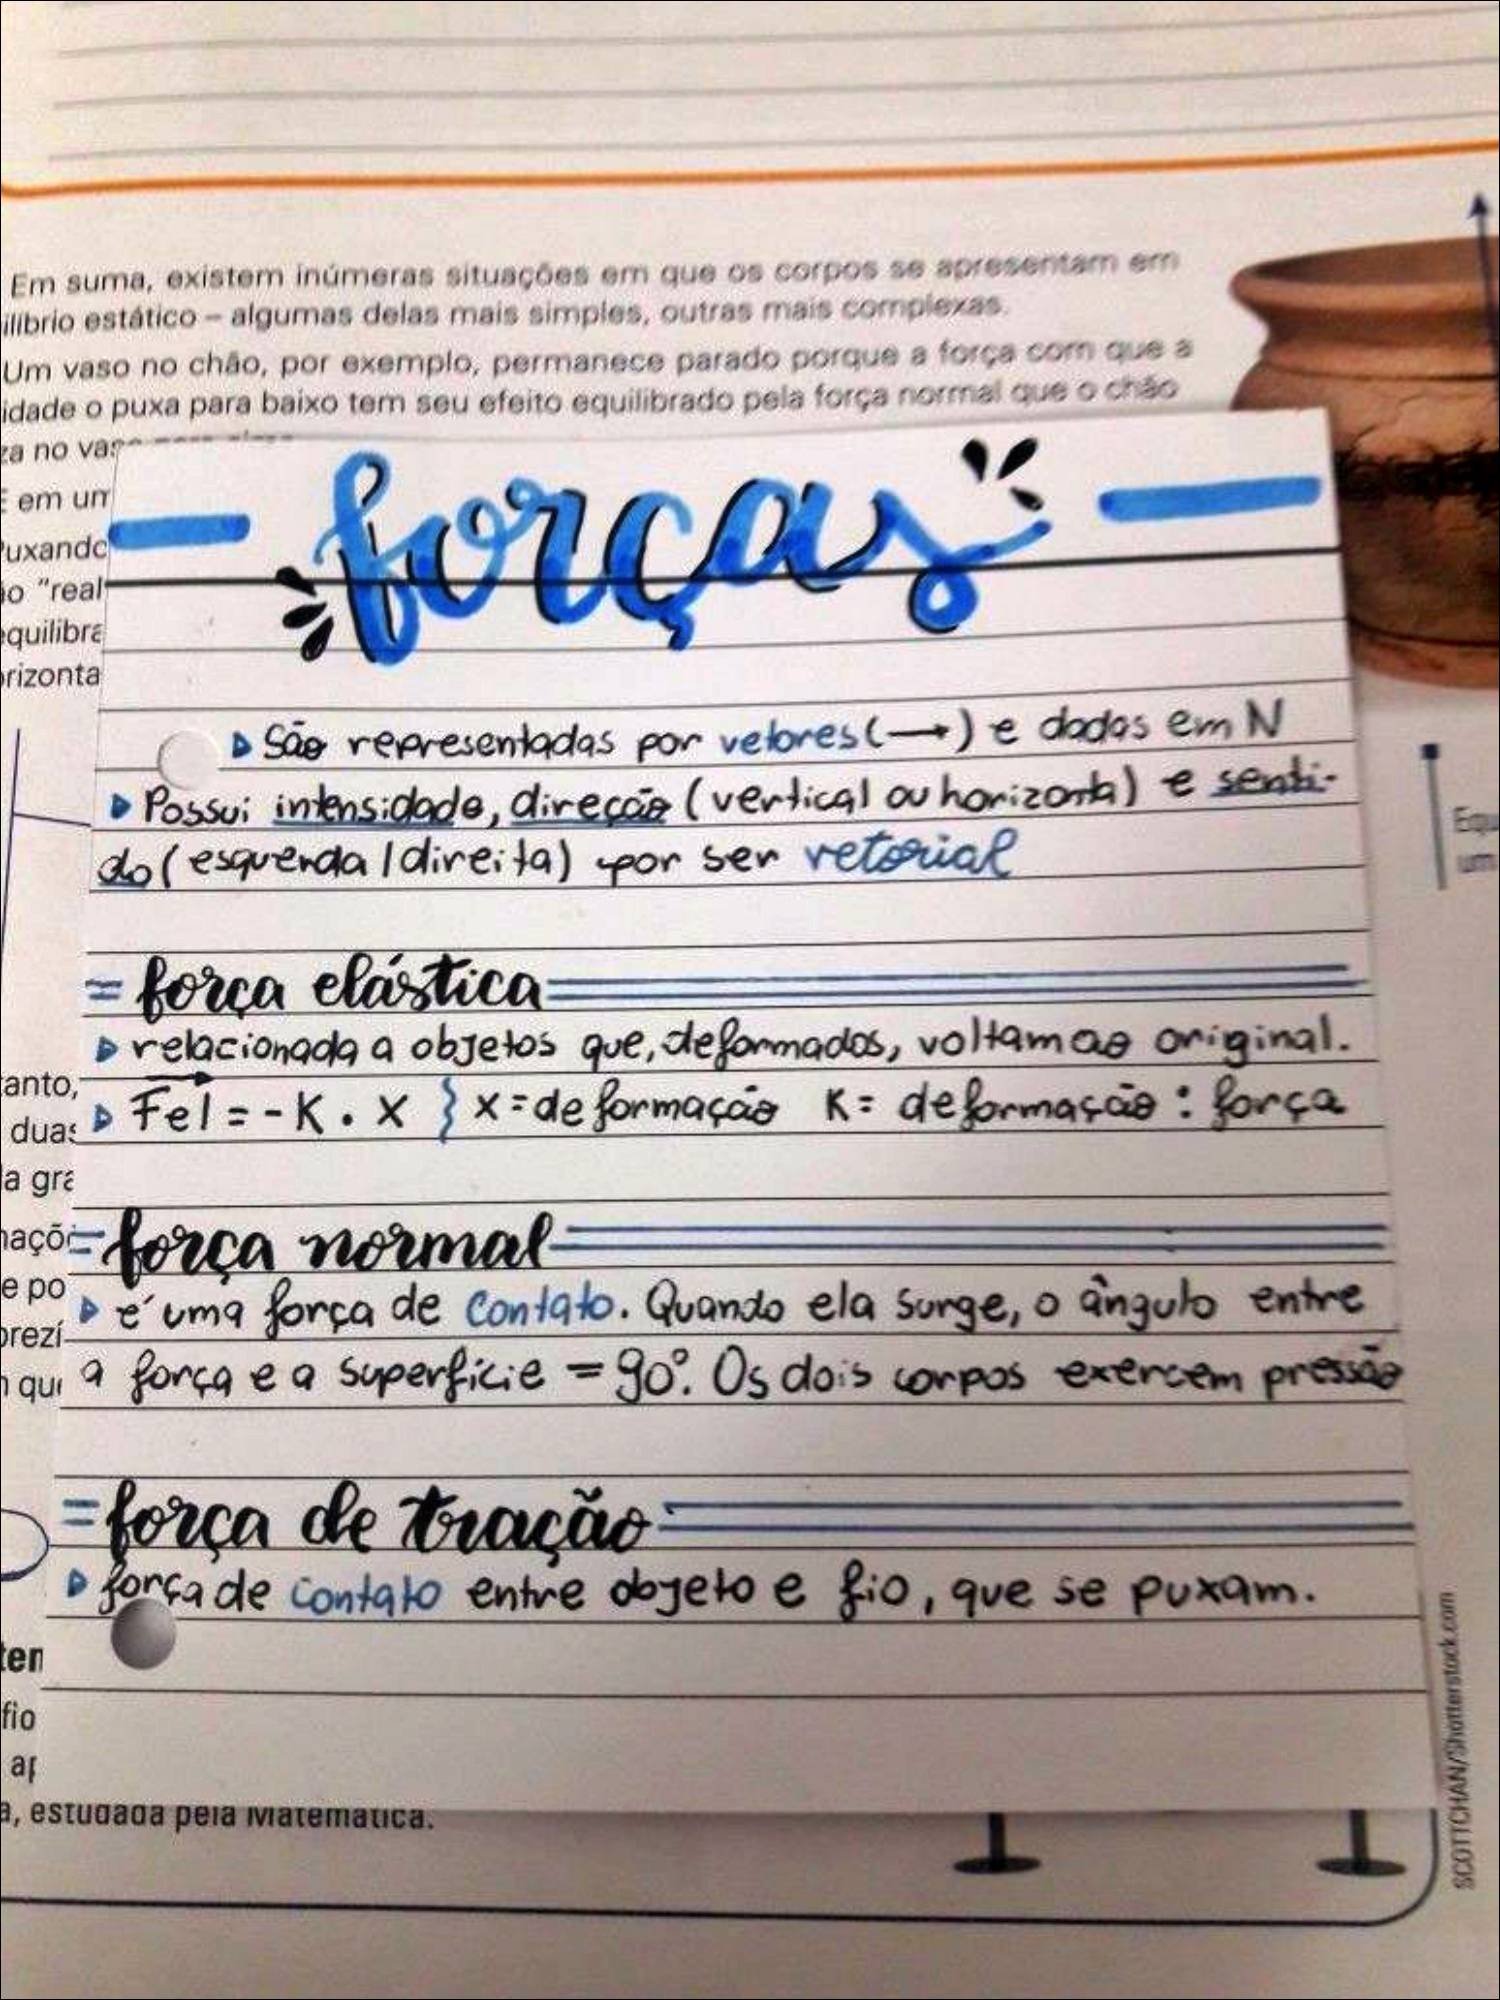 Em suma, existem inúmeras situações em que os corpos se apresentam em
ilíbrio estático – algumas delas mais simples, outras mais complexas.
Um vaso no chão, por exemplo, permanece parado porque a força com que a
idade o puxa para baixo tem seu efeito equilibrado pela força normal que o chão
za no vaso
E em um
Puxando
io "real
equilibra
orizonta
forças
São representadas por vetores (→) e dadas em N
Possui intensidade, direção (vertical ou horizonta) e senti-
do (esquerda / direita) por ser vetorial
= força elástica
relacionada a objetos que, deformados, voltam ao original.
Fel = - K . X } x = deformação K = deformação : força
= força normal
é uma força de contato. Quando ela surge, o ângulo entre
a força e a superfície = 90°. Os dois corpos exercem pressão
= força de tração
força de contato entre objeto e fio, que se puxam.
tanto,
duas
a gra
e po
qui
ten
fio
a, estudada pela Matemática.
Equ
um
SCOTTCHAN/Shutterstock.com